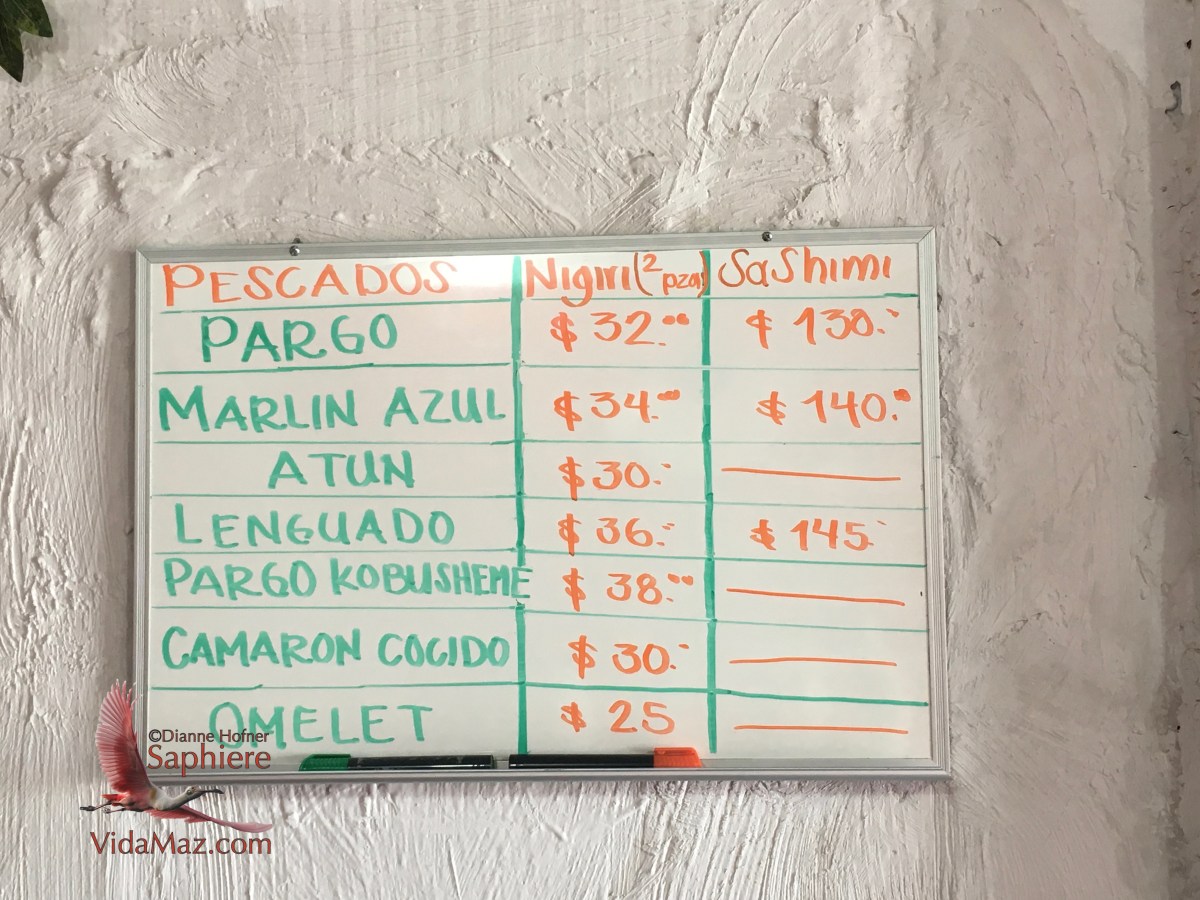 PESCADOS Nigiri (2 pzas) SaShimi
PARGO $32.00 $130.-
MARLIN AZUL $34.00 $140.00
ATUN $30.-
LENGUADO $36.- $145.-
PARGO KOBUSHEME $38.00
CAMARON COCIDO $30.-
OMELET $25
©Dianne Hofner
Saphiere
VidaMaz.com